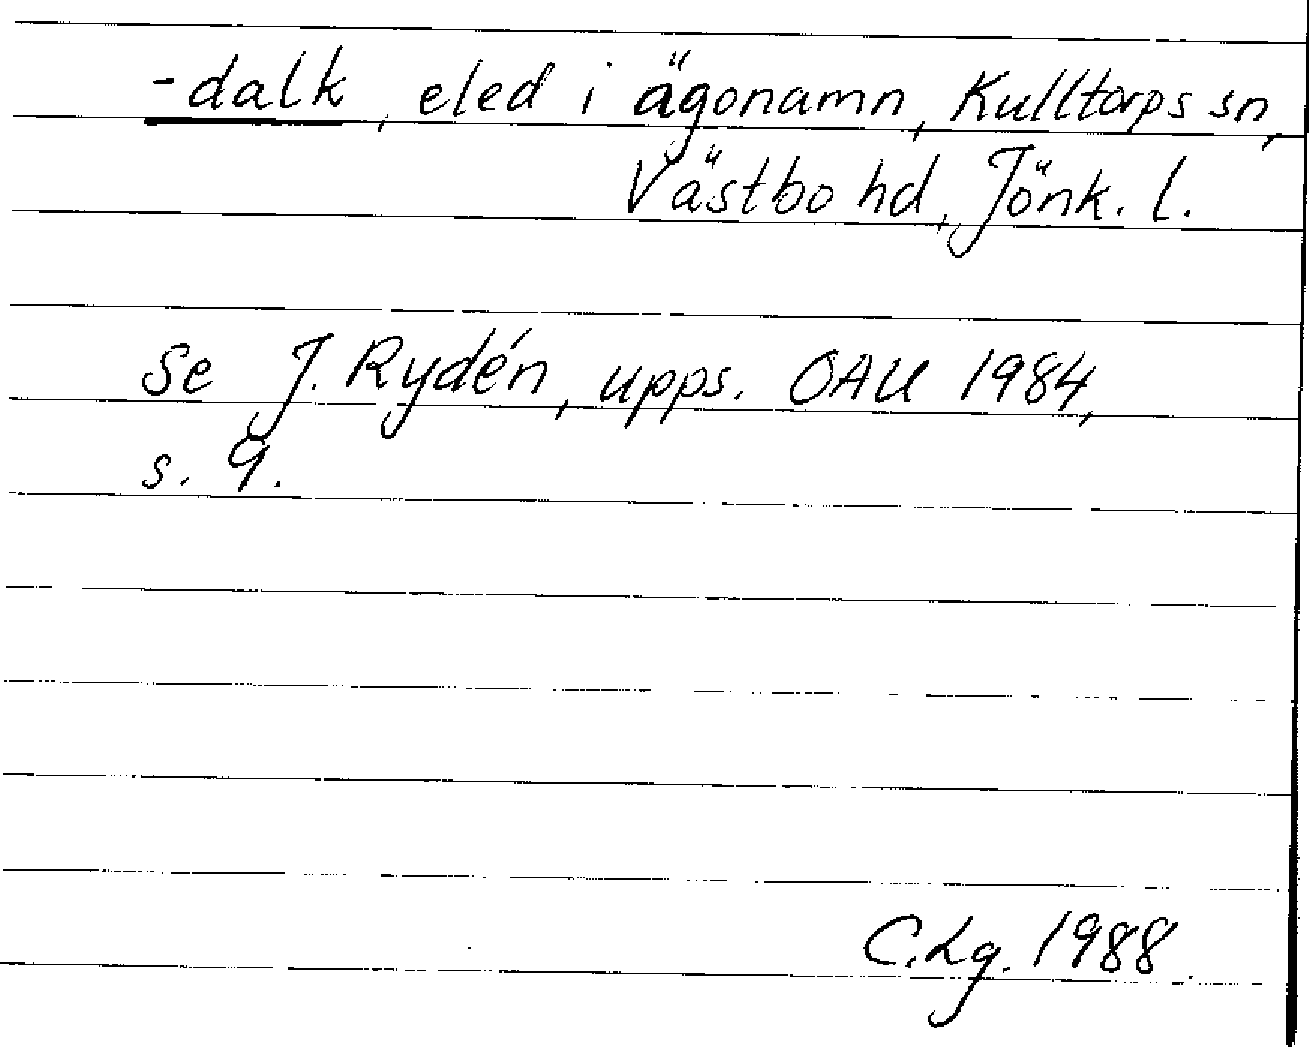 -dalk, eled i ägonamn, Kulltorps sn,
Västbo hd, Jönk. l.
Se J. Rydén, upps. OAU 1984,
s. 9.
C.Lg. 1988